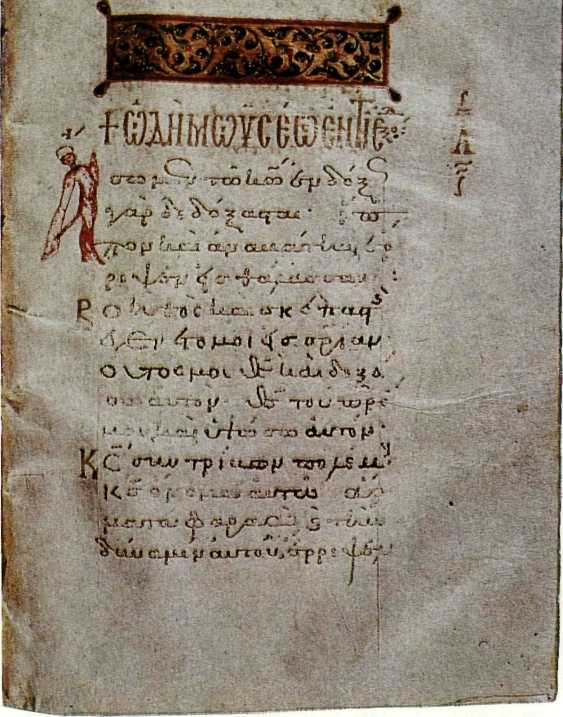 + ὨΔῊ ΜΩΥΣΈΩΣ ἘΝ ΤΗ ἘΞΟ
σωμεν τῶ κῶ ἐνδόξ
γὰρ δεδόξασται· ἵπ
πον καὶ ἀναβάτην ἔρ
ριψεν εἰς θάλασσαν:
Βοηθὸς καὶ σκεπασ
ἐγένετό μοι εἰς σρίαν
οὗτός μου θς καὶ δοξά
σω αὐτόν· θς τοῦ πρς
μου καὶ ὑψώσω αὐτόν·
Κς συντρίβων πολέμ
κς ὄνομα αὐτῶ ἅρ
ματα φαραὼ καὶ τὴν
δύναμιν αὐτοῦ, ἔρριψεν